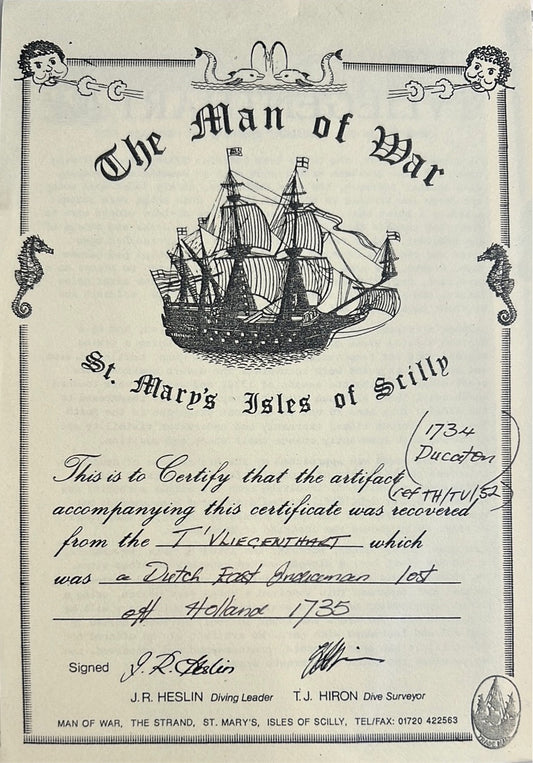 The Man of War
St. Mary's Isles of Scilly
(1734
Ducaton
ref TH/TV/52)
This is to Certify that the artifact
accompanying this certificate was recovered
from the T'VLIEGENTHART which
was a Dutch East Indiaman lost
off Holland 1735
Signed J.R. Heslin
J.R. HESLIN Diving Leader T.J. HIRON Dive Surveyor
MAN OF WAR, THE STRAND, ST. MARY'S, ISLES OF SCILLY, TEL/FAX: 01720 422563